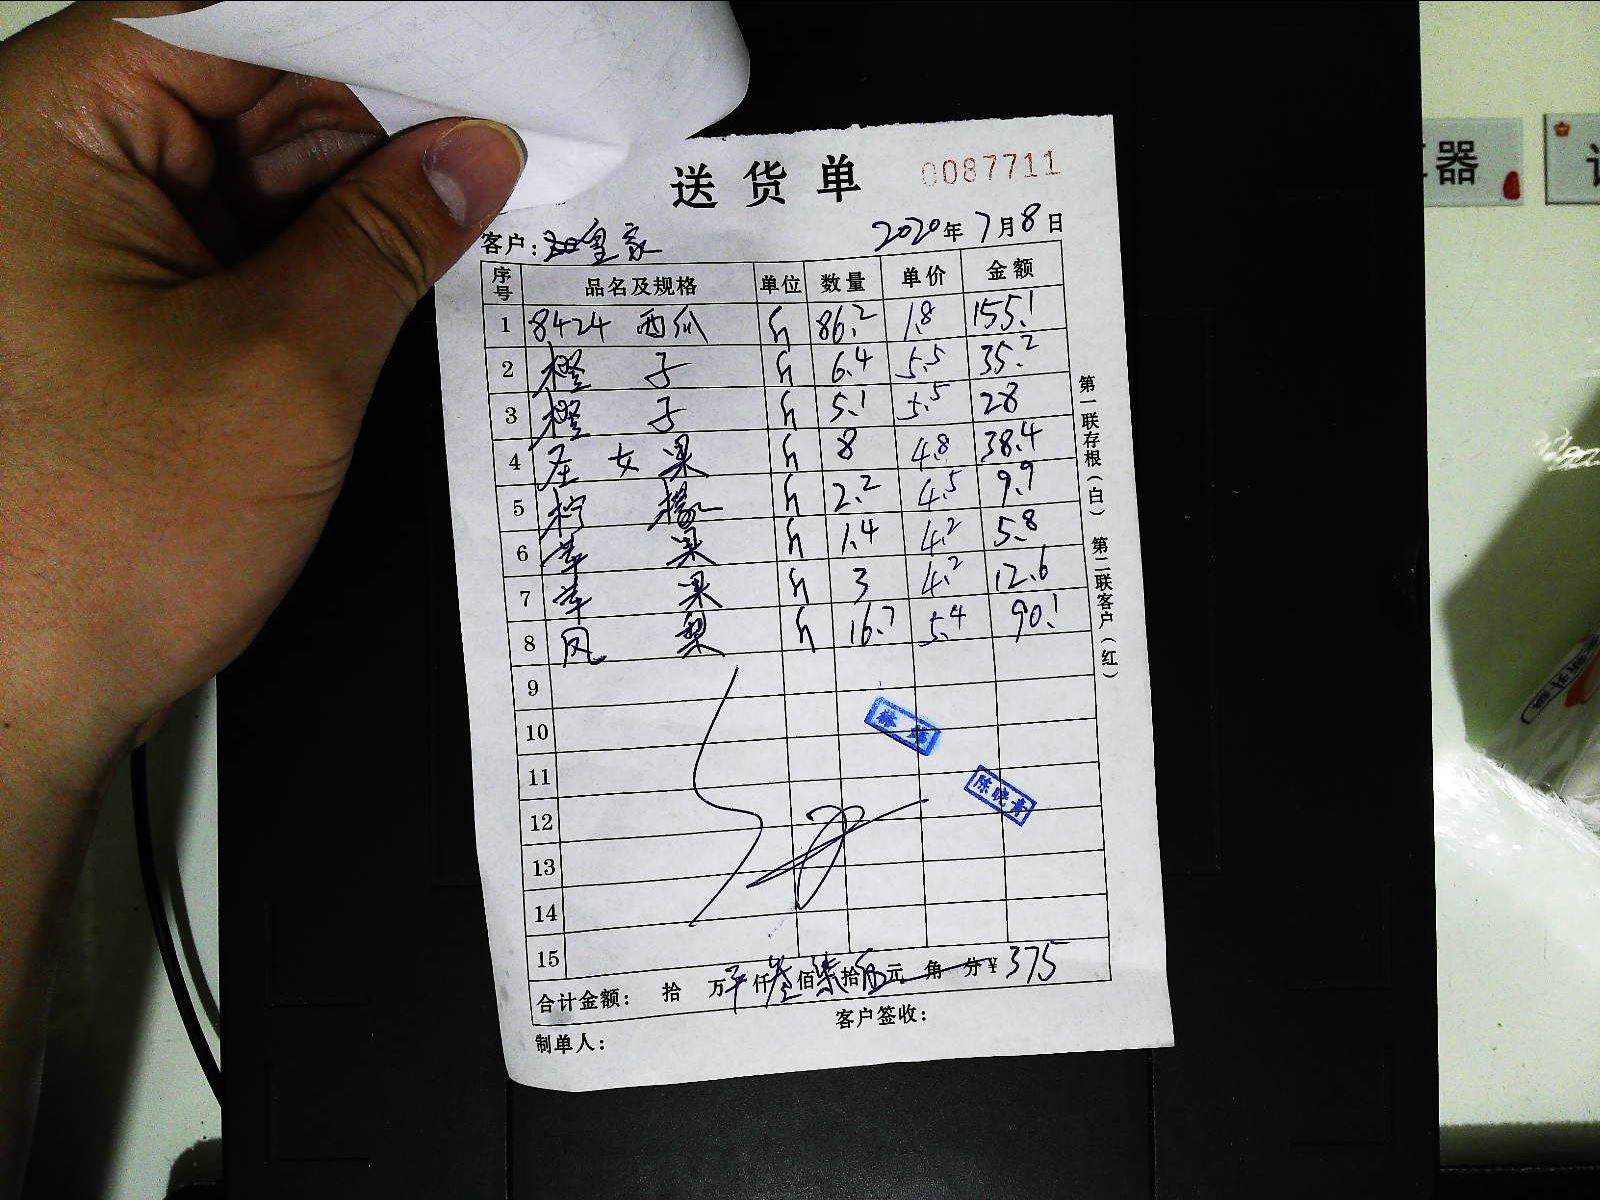 送货单 0087711
客户: 皇家 2020年7月8日
序号 品名及规格 单位 数量 单价 金额
1 8424 西瓜 斤 86.2 1.8 155.1
2 橙子 斤 6.4 5.5 35.2
3 橙子 斤 5.1 5.5 28
4 圣女果 斤 8 4.8 38.4
5 柠檬 斤 2.2 4.5 9.9
6 苹果 斤 1.4 4.2 5.8
7 苹果 斤 3 4.2 12.6
8 凤梨 斤 16.7 5.4 90.1
9
10
11
12
13
14
15
陈晓青
合计金额: 拾 万 仟叁佰柒拾伍元 角 分¥375
制单人: 客户签收:
第一联存根(白) 第二联客户(红)
器